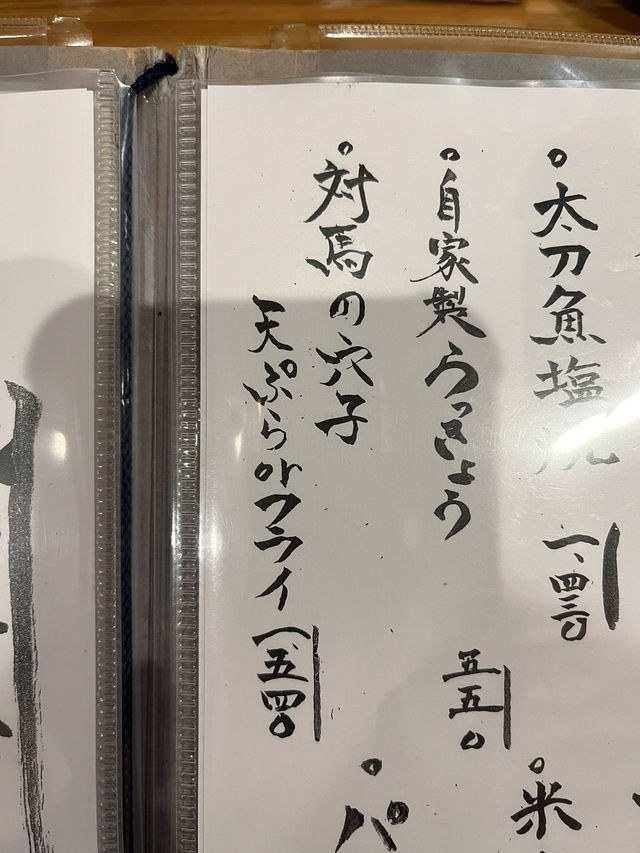 太刀魚塩焼
一、四三〇
自家製らっきょう
五五〇
対馬の穴子
天ぷらorフライ
一、五四〇
米
パ